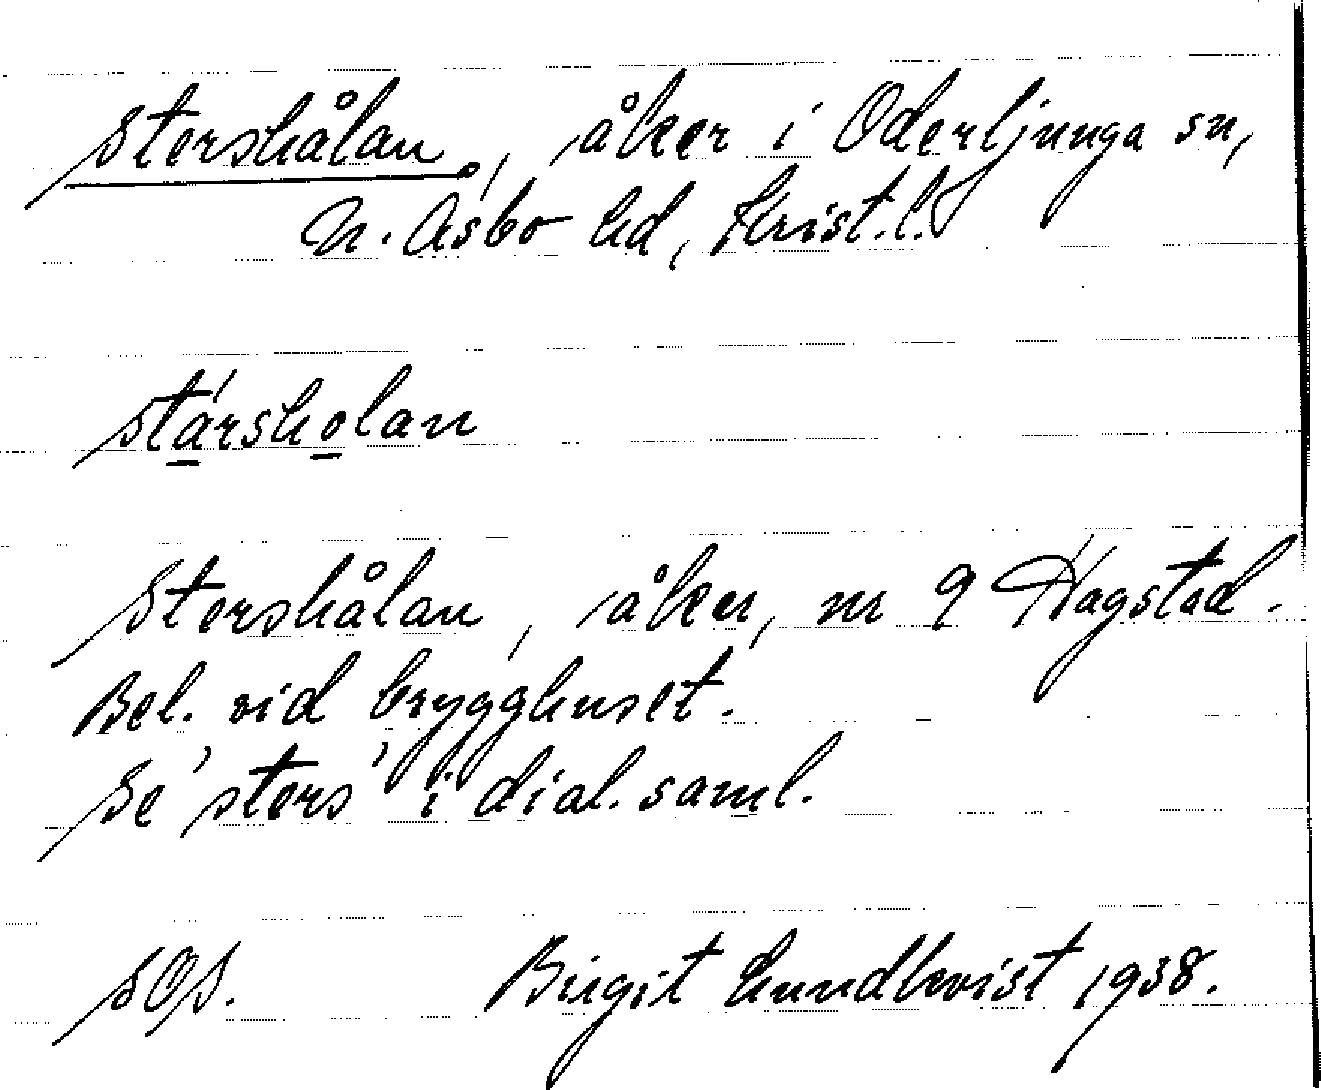 Stershålan, åker i Oderljunga sn,
N. Åsbo hd, Krist.l.
stársholan
Stershålan, åker, nr 9 Hagstad.
Bel. vid brygghuset.
Se 'sters' i dial. saml.
SOS. Birgit Lundkvist 1938.